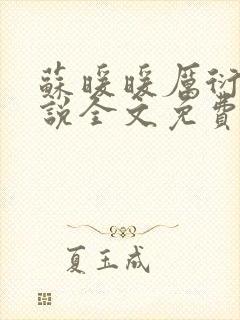 蘇暖暖厲衍
說全文免費
夏玉成